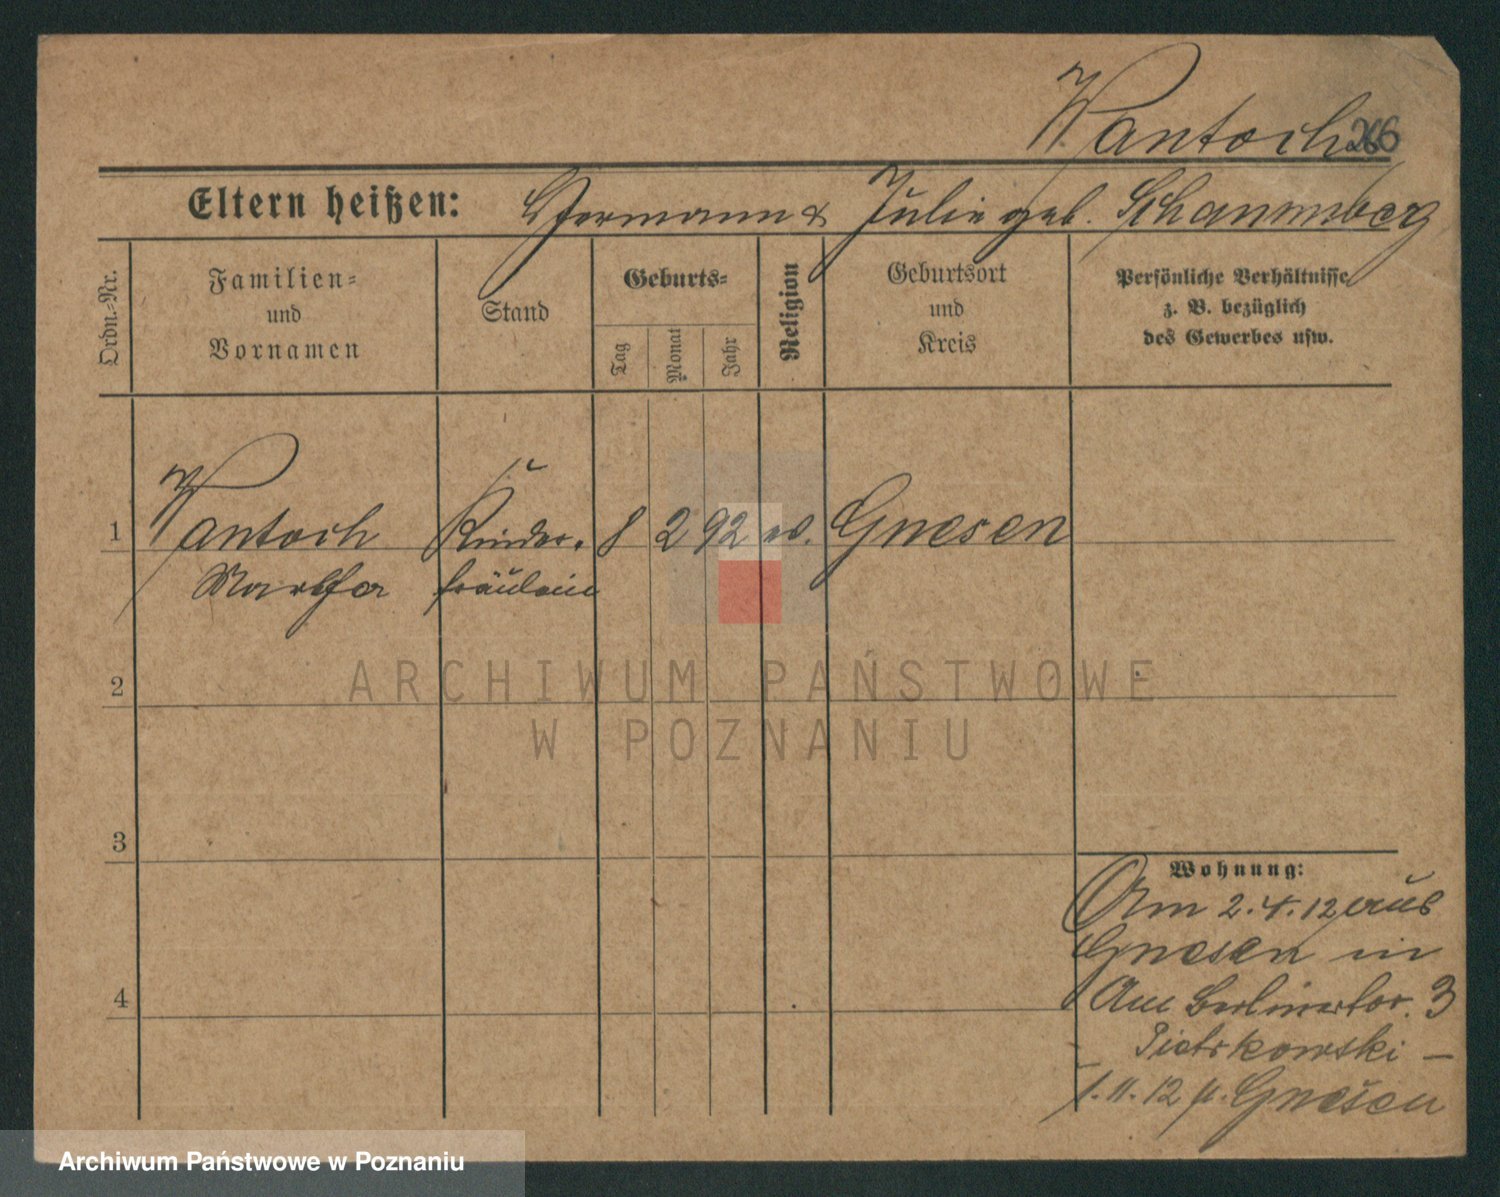 Wantoch
266
Eltern heißen: Hermann & Julie geb. Schaumberg
Ordn.-Nr.
Familien-
und
Vornamen
Stand
Geburts-
Tag
Monat
Jahr
Religion
Geburtsort
und
Kreis
Persönliche Verhältnisse
z. B. bezüglich
des Gewerbes usw.
1 Wantoch Kinder- 8 2 92 ev. Gnesen
Martha fräulein
2
3
4
Wohnung:
Am 2.4.12 aus
Gnesen in
Am Berlinertor. 3
Piotrkowski –
1.11.12 n. Gnesen
ARCHIWUM PAŃSTWOWE
W POZNANIU
Archiwum Państwowe w Poznaniu